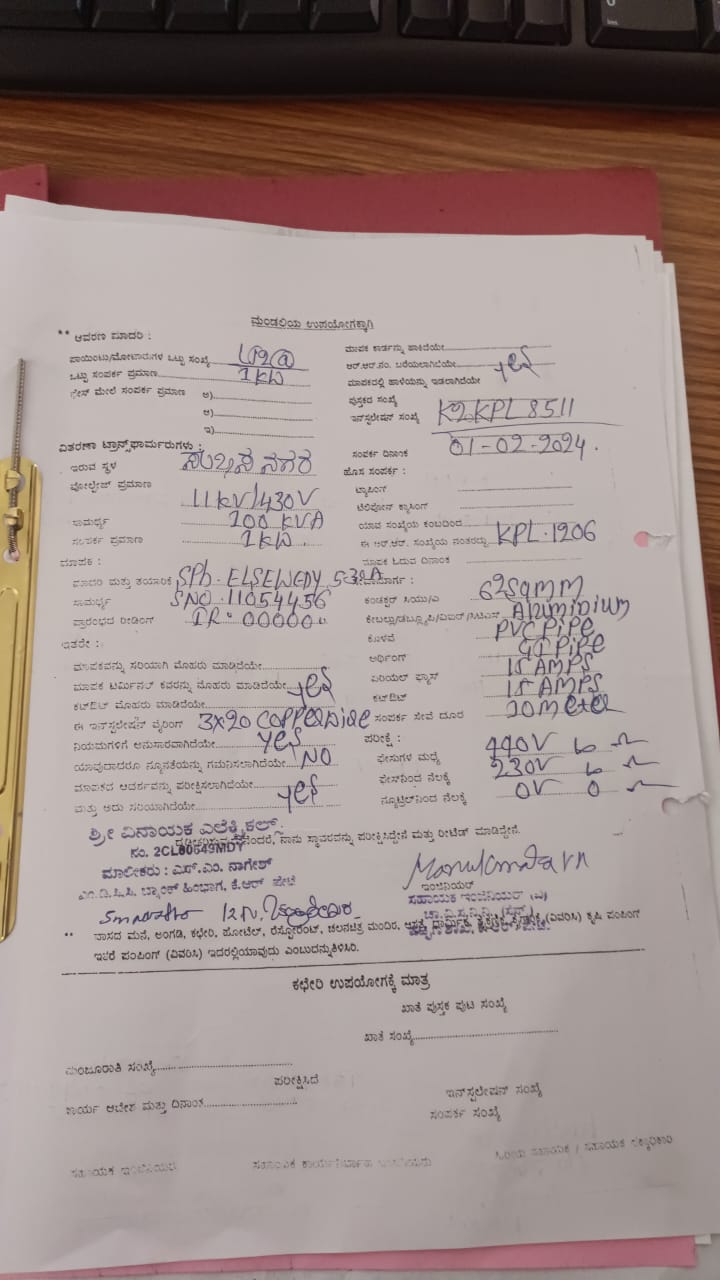 ಮಂಡಲಿಯ ಉಪಯೋಗಕ್ಕಾಗಿ
** ಆವರಣ ಮಾದರಿ :
ಮಾಪಕ ಕಾರ್ಡನ್ನು ಹಾಕಿದೆಯೇ
ಪಾಯಿಂಟು/ಮೋಟಾರುಗಳ ಒಟ್ಟು ಸಂಖ್ಯೆ
ಆರ್.ಆರ್.ನಂ. ಬರೆಯಲಾಗಿದೆಯೇ
ಒಟ್ಟು ಸಂಪರ್ಕ ಪ್ರಮಾಣ 1 KW
ಮಾಪಕದಲ್ಲಿ ಹಾಳೆಯನ್ನು ಇಡಲಾಗಿದೆಯೇ yes
ಫೇಸ್ ಮೇಲೆ ಸಂಪರ್ಕ ಪ್ರಮಾಣ ಅ)
ಪುಸ್ತಕದ ಸಂಖ್ಯೆ
ಆ)
ಇನ್‌ಸ್ಟಲೇಷನ್ ಸಂಖ್ಯೆ K2KPL8511
ಇ)
ಸಂಪರ್ಕ ದಿನಾಂಕ 01-02-2024.
ವಿತರಣಾ ಟ್ರಾನ್ಸ್‌ಫಾರ್ಮರುಗಳು :
ಹೊಸ ಸಂಪರ್ಕ :
ಇರುವ ಸ್ಥಳ
ಟ್ಯಾಪಿಂಗ್
ವೋಲ್ಟೇಜ್ ಪ್ರಮಾಣ 11KV/430V
ಟೆಲಿಫೋನ್ ಕ್ರಾಸಿಂಗ್
ಸಾಮರ್ಥ್ಯ 100 KVA
ಯಾವ ಸಂಖ್ಯೆಯ ಕಂಬದಿಂದ
ಸಂಪರ್ಕ ಪ್ರಮಾಣ 1KW.
ಈ ಆರ್.ಆರ್. ಸಂಖ್ಯೆಯ ನಂತರದ್ದು KPL.1206
ಮಾಪಕ :
ಮಾಪಕ ಓದುವ ದಿನಾಂಕ
ಮಾದರಿ ಮತ್ತು ತಯಾರಿಕೆ SPh. ELSEWEDY 5-32A
ಸಾಮರ್ಥ್ಯ SNO.11054456
ಕಂಡಕ್ಟರ್ ಸಿಯು/ಎ 6²SqMM
ಪ್ರಾರಂಭದ ರೀಡಿಂಗ್ IR:00000..
Aluminium
ಇತರೇ :
ಕೊಳವೆ PVC PIPE
ಅರ್ಥಿಂಗ್ GI PIPE
ಮಾಪಕವನ್ನು ಸರಿಯಾಗಿ ಮೊಹರು ಮಾಡಿದೆಯೇ
ಏರಿಯಲ್ ಫ್ಯೂಸ್ 15 AMPS
ಮಾಪಕ ಟರ್ಮಿನಲ್ ಕವರನ್ನು ಮೊಹರು ಮಾಡಿದೆಯೇ yes
ಕಟ್‌ಔಟ್ 15 AMPS
ಕಟ್‌ಔಟ್ ಮೊಹರು ಮಾಡಿದೆಯೇ
ಸಂಪರ್ಕ ಸೇವೆ ದೂರ 20 Meter
ಈ ಇನ್‌ಸ್ಟಲೇಷನ್ ವೈರಿಂಗ್ 3x20
ಪರೀಕ್ಷೆ :
ನಿಯಮಗಳಿಗೆ ಅನುಸಾರವಾಗಿದೆಯೇ yes
ಫೇಸುಗಳ ಮಧ್ಯೆ 440V
ಯಾವುದಾದರೂ ನ್ಯೂನತೆಯನ್ನು ಗಮನಿಸಲಾಗಿದೆಯೇ NO
ಫೇಸ್‌ನಿಂದ ನೆಲಕ್ಕೆ 230V
ಮಾಪಕದ ಆದರ್ಶವನ್ನು ಪರೀಕ್ಷಿಸಲಾಗಿದೆಯೇ
ನ್ಯೂಟ್ರಲ್‌ನಿಂದ ನೆಲಕ್ಕೆ 0V 0
ಮತ್ತು ಅದು ಸರಿಯಾಗಿದೆಯೇ yes
ಶ್ರೀ ವಿನಾಯಕ ಎಲೆಕ್ಟ್ರಿಕಲ್ಸ್
ನಾನು ಸ್ಥಾವರವನ್ನು ಪರೀಕ್ಷಿಸಿದ್ದೇನೆ ಮತ್ತು ರೀಟೆಡ್ ಮಾಡಿದ್ದೇನೆ.
ನಂ. 2CL80549MDY
ಮಾಲೀಕರು : ಎಸ್.ಎಂ. ನಾಗೇಶ್
ಇಂಜಿನಿಯರ್
ಎಂ.ಡಿ.ಸಿ.ಸಿ. ಬ್ಯಾಂಕ್ ಹಿಂಭಾಗ, ಕೆ.ಆರ್ ಪೇಟೆ
ಸಹಾಯಕ ಇಂಜಿನಿಯರ್ (ವಿ)
** ವಾಸದ ಮನೆ, ಅಂಗಡಿ, ಕಛೇರಿ, ಹೋಟೆಲ್, ರೆಸ್ಟೋರೆಂಟ್, ಚಲನಚಿತ್ರ ಮಂದಿರ, (ವಿವರಿಸಿ) ಕೃಷಿ ಪಂಪಿಂಗ್
ಇತರೆ ಪಂಪಿಂಗ್ (ವಿವರಿಸಿ) ಇದರಲ್ಲಿಯಾವುದು ಎಂಬುದನ್ನು ತಿಳಿಸಿರಿ.
ಕಛೇರಿ ಉಪಯೋಗಕ್ಕೆ ಮಾತ್ರ
ಖಾತೆ ಪುಸ್ತಕ ಪುಟ ಸಂಖ್ಯೆ
ಖಾತೆ ಸಂಖ್ಯೆ
ಮಂಜೂರಾತಿ ಸಂಖ್ಯೆ
ಪರೀಕ್ಷಿಸಿದೆ
ಇನ್‌ಸ್ಟಲೇಷನ್ ಸಂಖ್ಯೆ
ಕಾರ್ಯ ಆದೇಶ ಮತ್ತು ದಿನಾಂಕ
ಸಂಪರ್ಕ ಸಂಖ್ಯೆ
ಸಹಾಯಕ ಇಂಜಿನಿಯರ್
ಹಿರಿಯ ಸಹಾಯಕ / ಸಹಾಯಕ ಲೆಕ್ಕಾಧಿಕಾರಿ